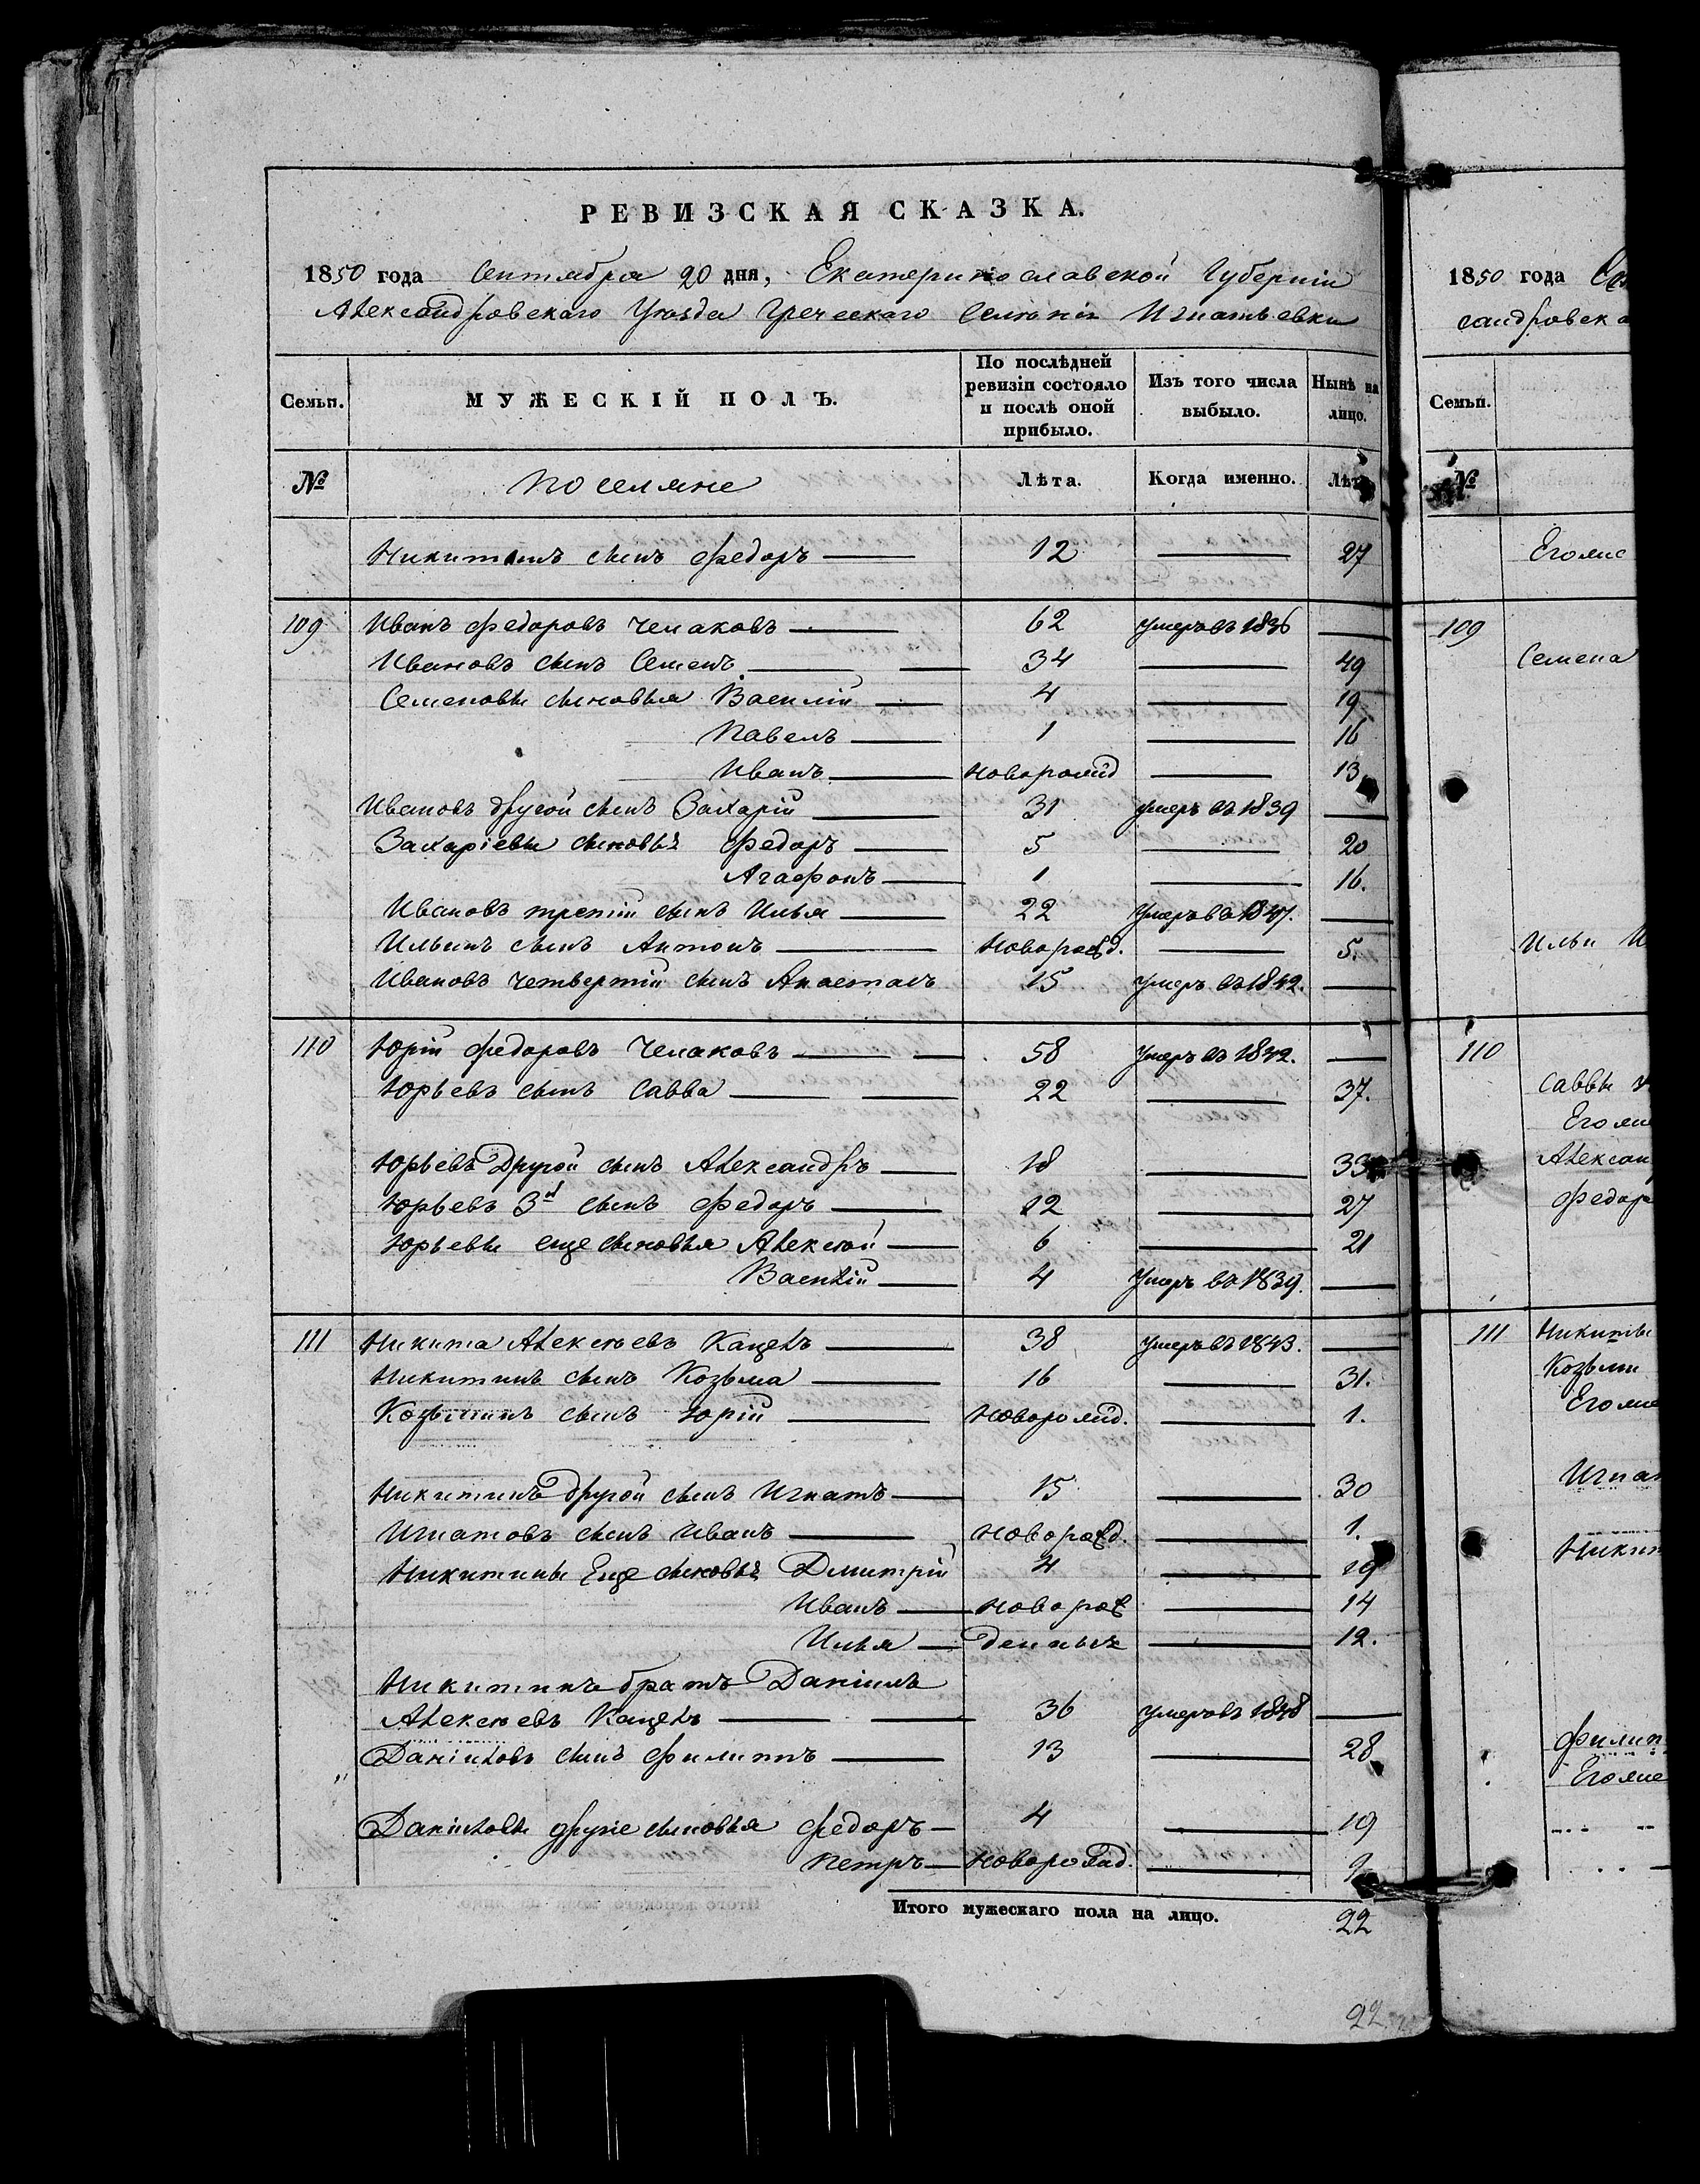 РЕВИЗСКАЯ СКАЗКА.
1850 года Сентября 20 дня, Екатеринославской Губерніи
Александровскаго Уѣзда Греческаго Селенія Игнатьевки
Семьи.
МУЖЕСКІЙ ПОЛЪ.
По послѣдней ревизіи состояло и послѣ оной прибыло.
Изъ того числа выбыло.
Нынѣ на лицо.
№ Поселяне Лѣта. Когда именно. Лѣта
Никитинъ сынъ Федоръ 12 27
109 Иванъ Федоровъ Челаковъ 62 умеръ въ 1836
Ивановъ сынъ Семенъ 34 49
Семеновы сыновья Василій 4 19
Павелъ 1 16
Иванъ новорожд 13
Ивановъ другой сынъ Захарій 31 умеръ въ 1839
Захаріевы сыновья Федоръ 5 20
Агафонъ 1 16.
Ивановъ третій сынъ Илья 22 умеръ въ
Ильинъ сынъ Антонъ новорожд. 5.
Ивановъ четвертій сынъ Анастасъ 15 умеръ въ 1842.
110 Юрій Федоровъ Челаковъ 58 умеръ въ 1842.
Юрьевъ сынъ Савва 22 37.
Юрьевъ Другой сынъ Александръ 18 33
Юрьевъ 3й сынъ Федоръ 12 27
Юрьевы еще сыновья Алексѣй 6 21
Василій 4 Умеръ въ 1839.
111 Никита Алексѣевъ Кацелъ 38 умеръ въ 1843.
Никитинъ сынъ Козьма 16 31.
Козьминъ сынъ Юрій Новорожд. 1.
Никитинъ другой сынъ Игнатъ 15 30
Игнатовъ сынъ Иванъ новорожд. 1.
Никитины Еще сыновья Дмитрій 4 19
Иванъ новорож 14
Илья денныхъ 12.
Никитинъ братъ Даніилъ
Алексѣевъ Кацелъ 36 умеръ въ 1848
Даніиловъ сынъ Филиппъ 13 28
Даніиловы другіе сыновья Федоръ 4 19
Петръ Новорожд.
Итого мужескаго пола на лицо. 22
22
1850 года
сандровска
Семьи.
№
Его
109
Семена
Ильи
110
Саввы
Его
Алексан
Федора
111 Никиты
Козьмы
Его
Игнат
Никит
Филип
Его